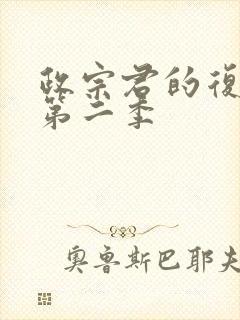 政宗君的復
第二季
奧魯斯巴耶夫